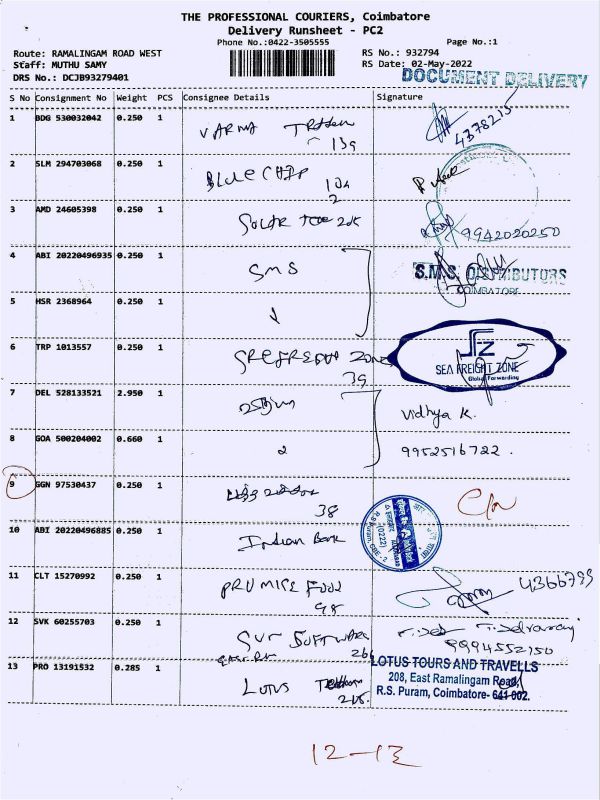 THE PROFESSIONAL COURIERS, Coimbatore
Delivery Runsheet - PC2
Phone No.:0422-3505555 Page No.:1
Route: RAMALINGAM ROAD WEST RS No.: 932794
Staff: MUTHU SAMY RS Date: 02-May-2022
DRS No.: DCJB93279401 DOCUMENT DELIVERY
S No Consignment No Weight PCS Consignee Details Signature
1 BDG 530032042 0.250 1 VARMA 4378215
139
2 SLM 294703068 0.250 1 BLUE CHIP
3 AMD 24605398 0.250 1 SOLAR 9942020250
4 ABI 20220496935 0.250 1 SMS S.M.S. DISTRIBUTORS
COIMBATORE
5 HSR 2368964 0.250 1
6 TRP 1013557 0.250 1 ZONE SFZ
39 SEA FREIGHT ZONE
Global Forwarding
7 DEL 528133521 2.950 1 Vidhya K.
8 GOA 500204002 0.660 1 9952516722.
9 GGN 97530437 0.250 1
38
10 ABI 20220496885 0.250 1 Indian Bank
11 CLT 15270992 0.250 1 PROMISE FOOD 4366799
98
12 SVK 60255703 0.250 1 SVR SOFTWARE
26 9994552150
13 PRO 13191532 0.285 1 LOTUS LOTUS TOURS AND TRAVELLS
208, East Ramalingam Road,
R.S. Puram, Coimbatore- 641 002.
12-13